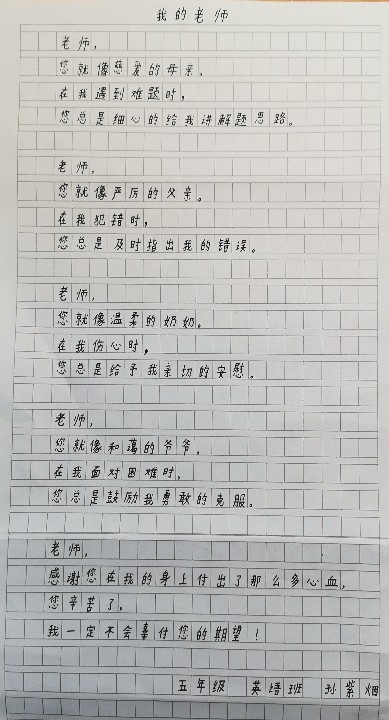 我的老师
老师，
您就像慈爱的母亲。
在我遇到难题时，
您总是细心的给我讲解题思路。
老师，
您就像严厉的父亲。
在我犯错时，
您总是及时指出我的错误。
老师，
您就像温柔的奶奶。
在我伤心时，
您总是给予我亲切的安慰。
老师，
您就像和蔼的爷爷。
在我面对困难时，
您总是鼓励我勇敢的克服。
老师，
感谢您在我的身上付出了那么多心血，
您辛苦了，
我一定不会辜付您的期望！
五年级 英培班 孙紫烟